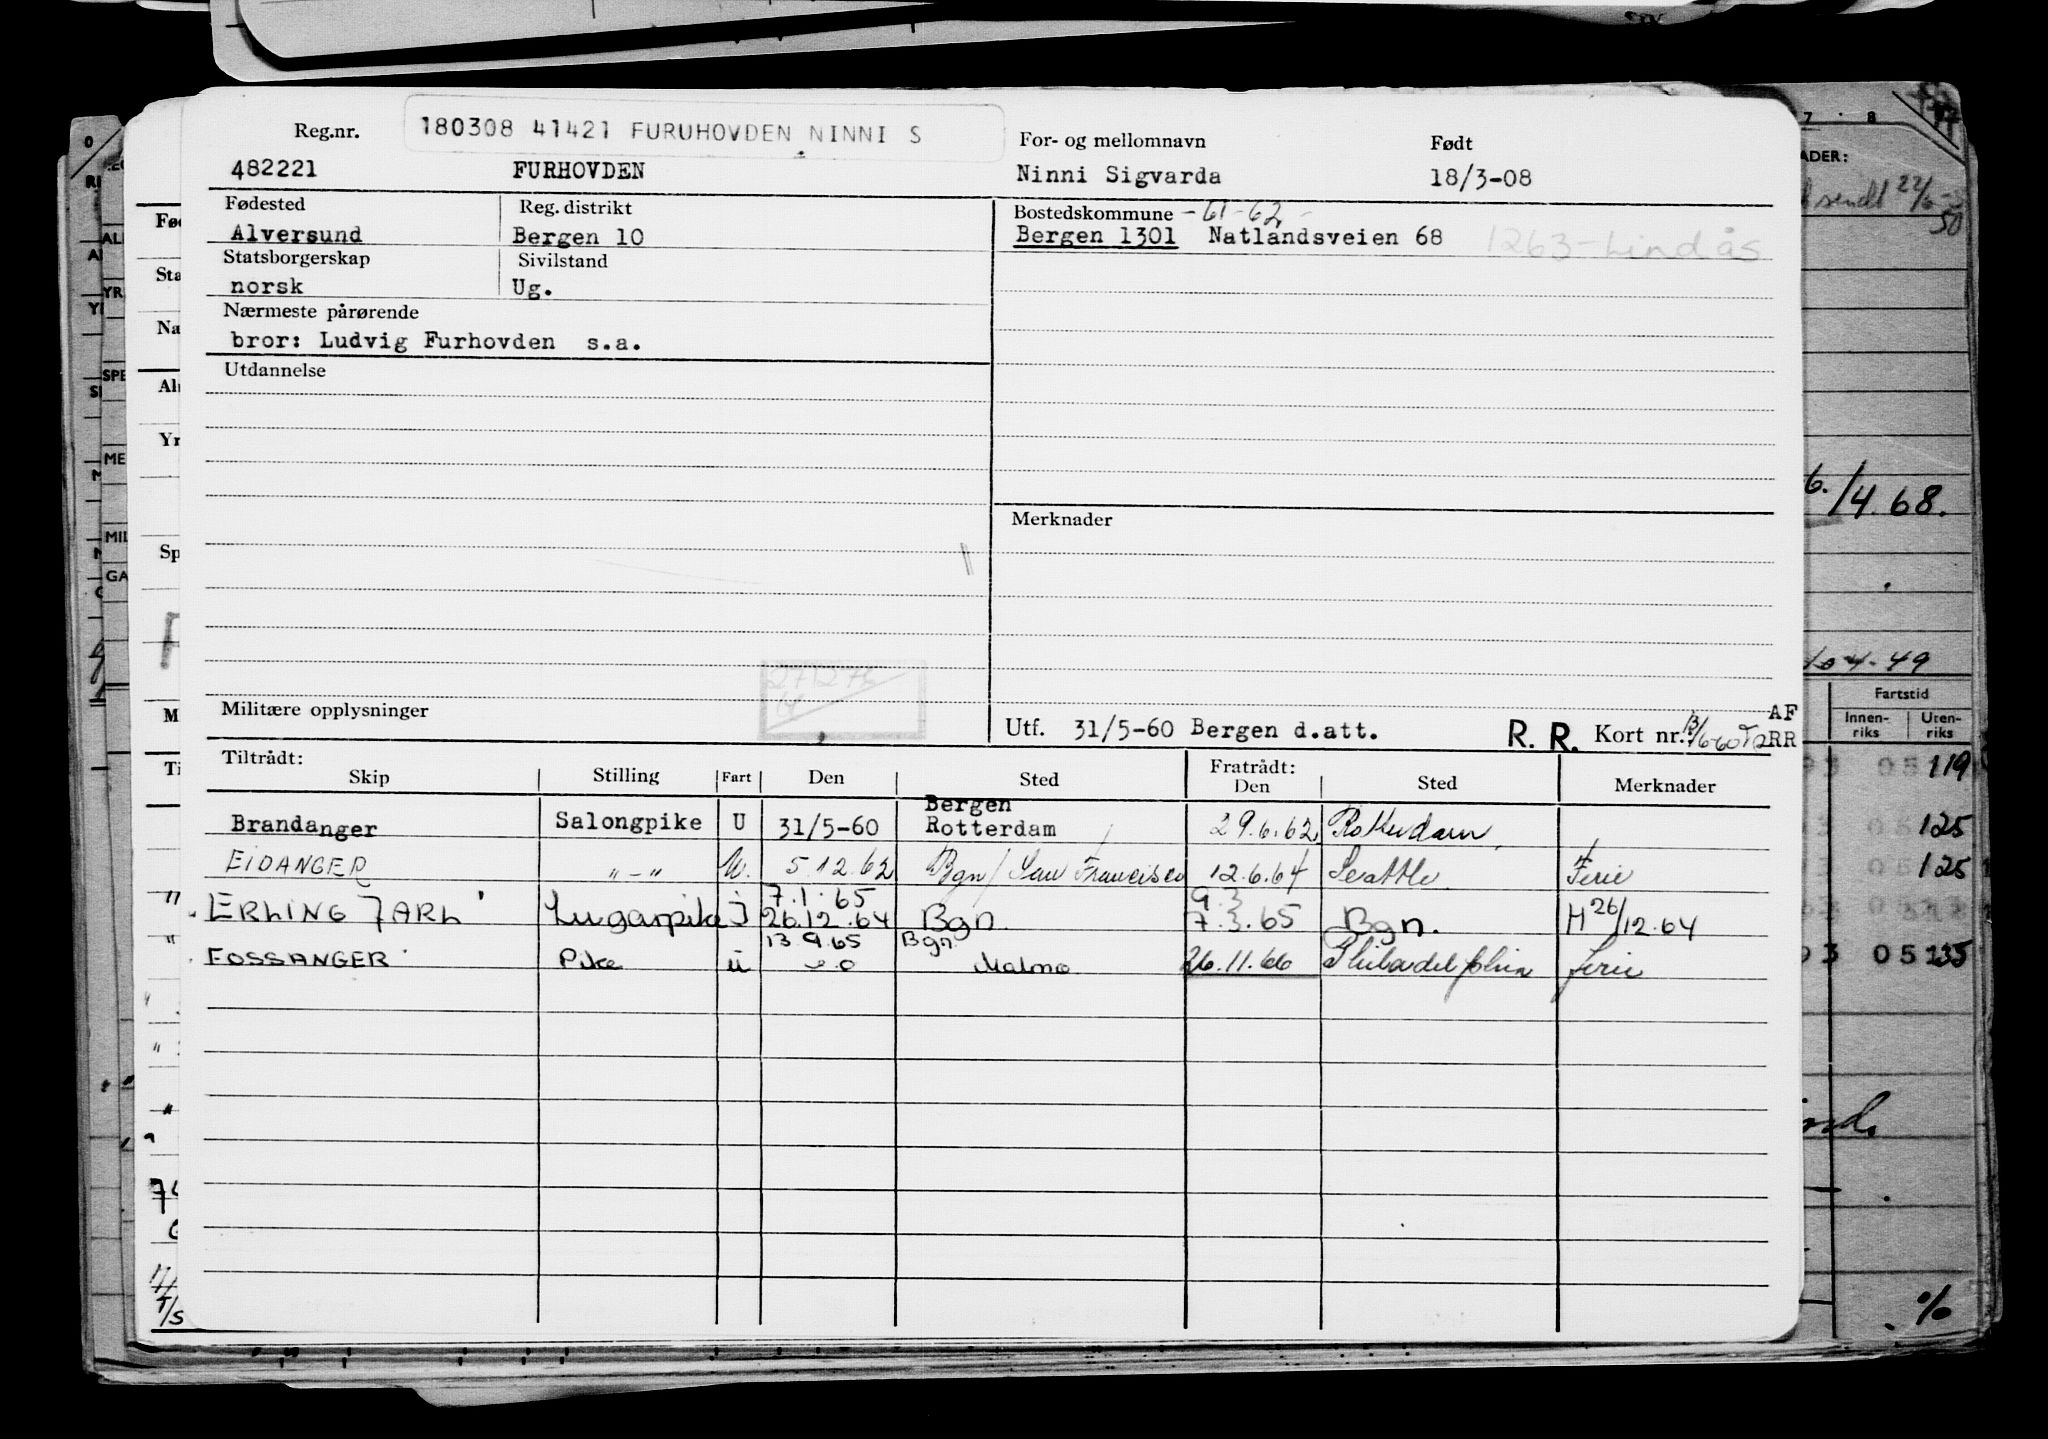 180308 41421 FURUHOVDEN NINNI S
Reg.nr. For- og mellomnavn Født
482221 FURHOVDEN Ninni Sigvarda 18/3-08
Fødested Reg. distrikt Bostedskommune -61-62-
Alversund Bergen 10 Bergen 1301 Natlandsveien 68 1263-Lindås
Statsborgerskap Sivilstand
norsk Ug.
Nærmeste pårørende
bror: Ludvig Furhovden s.a.
Utdannelse
Merknader
Militære opplysninger
Utf. 31/5-60 Bergen d.att. R. R. Kort nr. AF
RR
Tiltrådt: Fratrådt:
Skip Stilling Fart Den Sted Den Sted Merknader
Bergen
Brandanger Salongpike U 31/5-60 Rotterdam 29.6.62 Rotterdam
EIDANGER "-" U. 5.12.62 Bgn/San Francisco 12.6.64 Seattle Ferie
7.1.65 9.3
ERLING JARL Lugarpike J 26.12.64 Bgn. 7.3.65 Bgn. H 26/12.64
13.9.65 Bgn
FOSSANGER Pike ü Malmø 26.11.66 Philadelphia ferie
6./4.68.
4-49
Fartstid
Innen-riks Uten-riks
119
125
125
135